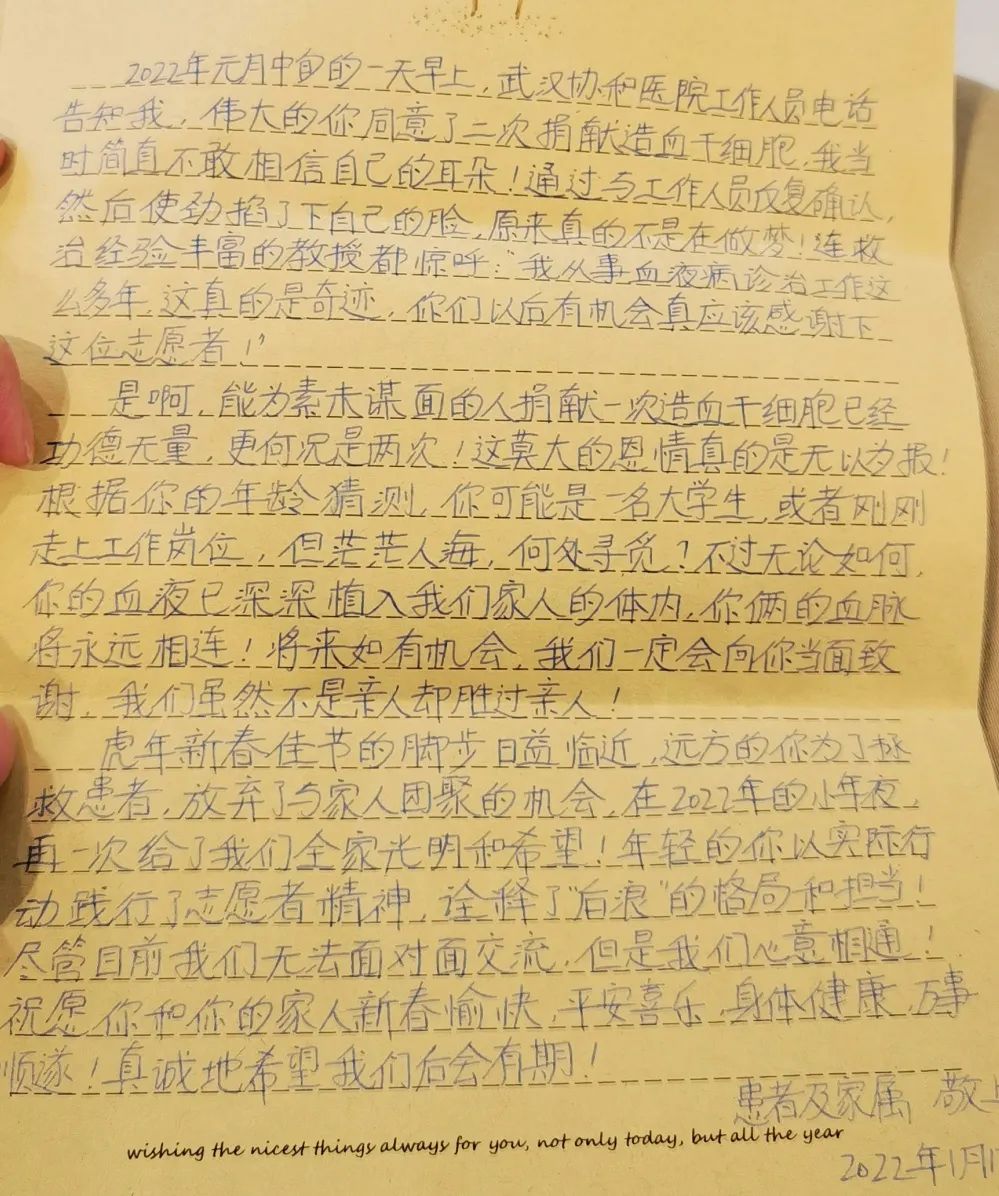 2022年元月中旬的一天早上，武汉协和医院工作人员电话
告知我，伟大的你同意了二次捐献造血干细胞，我当
时简直不敢相信自己的耳朵！通过与工作人员反复确认，
然后使劲掐了下自己的脸，原来真的不是在做梦！连救
治经验丰富的教授都惊呼：“我从事血液病诊治工作这
么多年，这真的是奇迹，你们以后有机会真应该感谢下
这位志愿者！”
是啊，能为素未谋面的人捐献一次造血干细胞已经
功德无量，更何况是两次！这莫大的恩情真的是无以为报！
根据你的年龄猜测，你可能是一名大学生，或者刚刚
走上工作岗位，但茫茫人海，何处寻觅？不过无论如何，
你的血液已深深植入我们家人的体内，你俩的血脉
将永远相连！将来如有机会，我们一定会向你当面致
谢，我们虽然不是亲人却胜过亲人！
虎年新春佳节的脚步日益临近，远方的你为了拯
救患者，放弃了与家人团聚的机会，在2022年的小年夜，
再一次给了我们全家光明和希望！年轻的你以实际行
动践行了志愿者精神，诠释了“后浪”的格局和担当！
尽管目前我们无法面对面交流，但是我们心意相通！
祝愿你和你的家人新春愉快，平安喜乐，身体健康，万事
顺遂！真诚地希望我们后会有期！
患者及家属 敬上
wishing the nicest things always for you, not only today, but all the year
2022年1月1